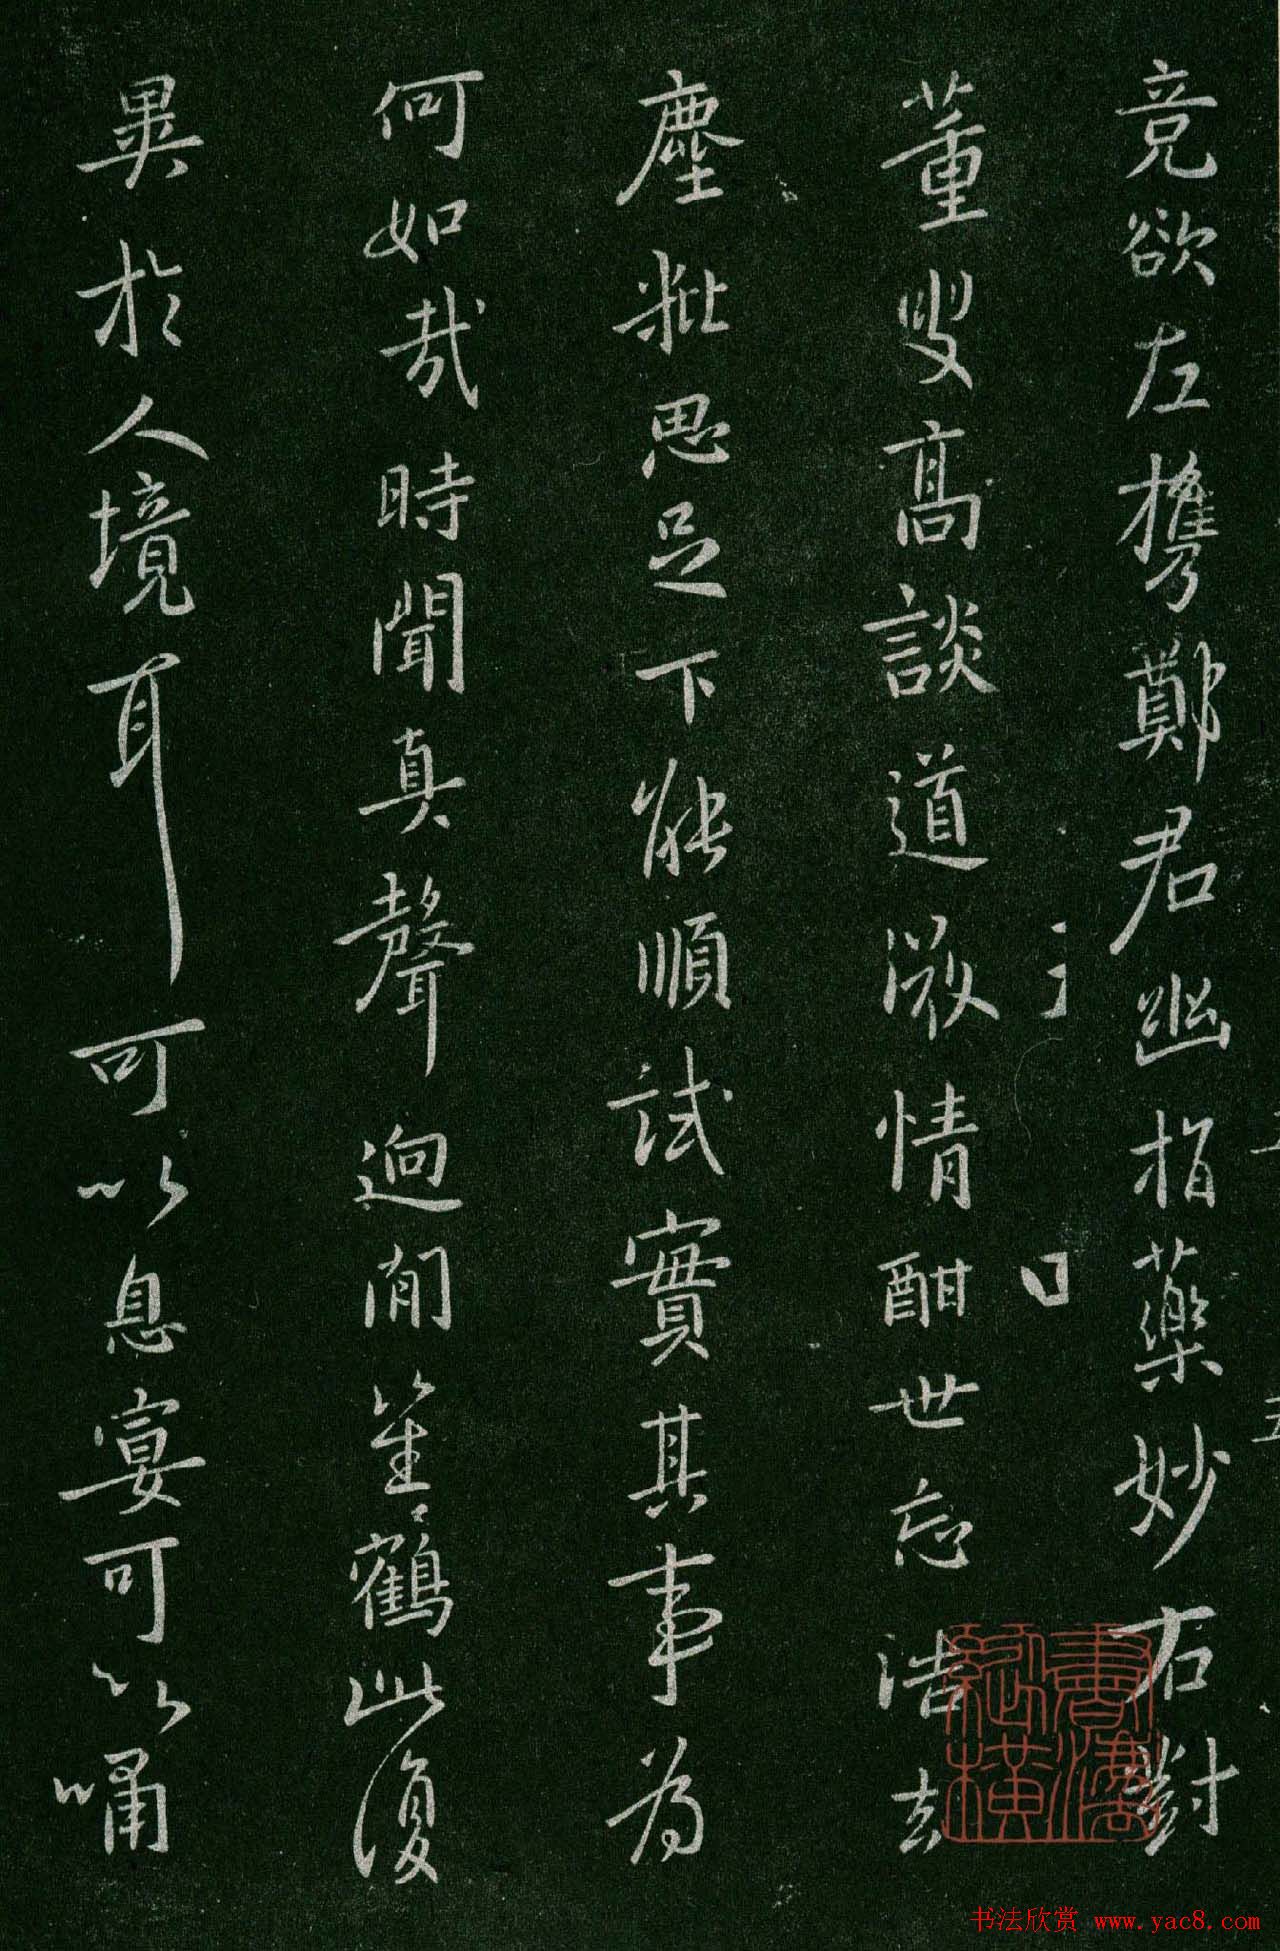 竟欲左攜鄭君幽指藥妙右對
董叟高談道激情酣世忘浩去
塵粃思足下能順試實其事為
何如哉時聞真聲迥間笙鶴此復
異於人境耳可以息宴可以嘯
書法縱橫
书法欣赏 www.yac8.com